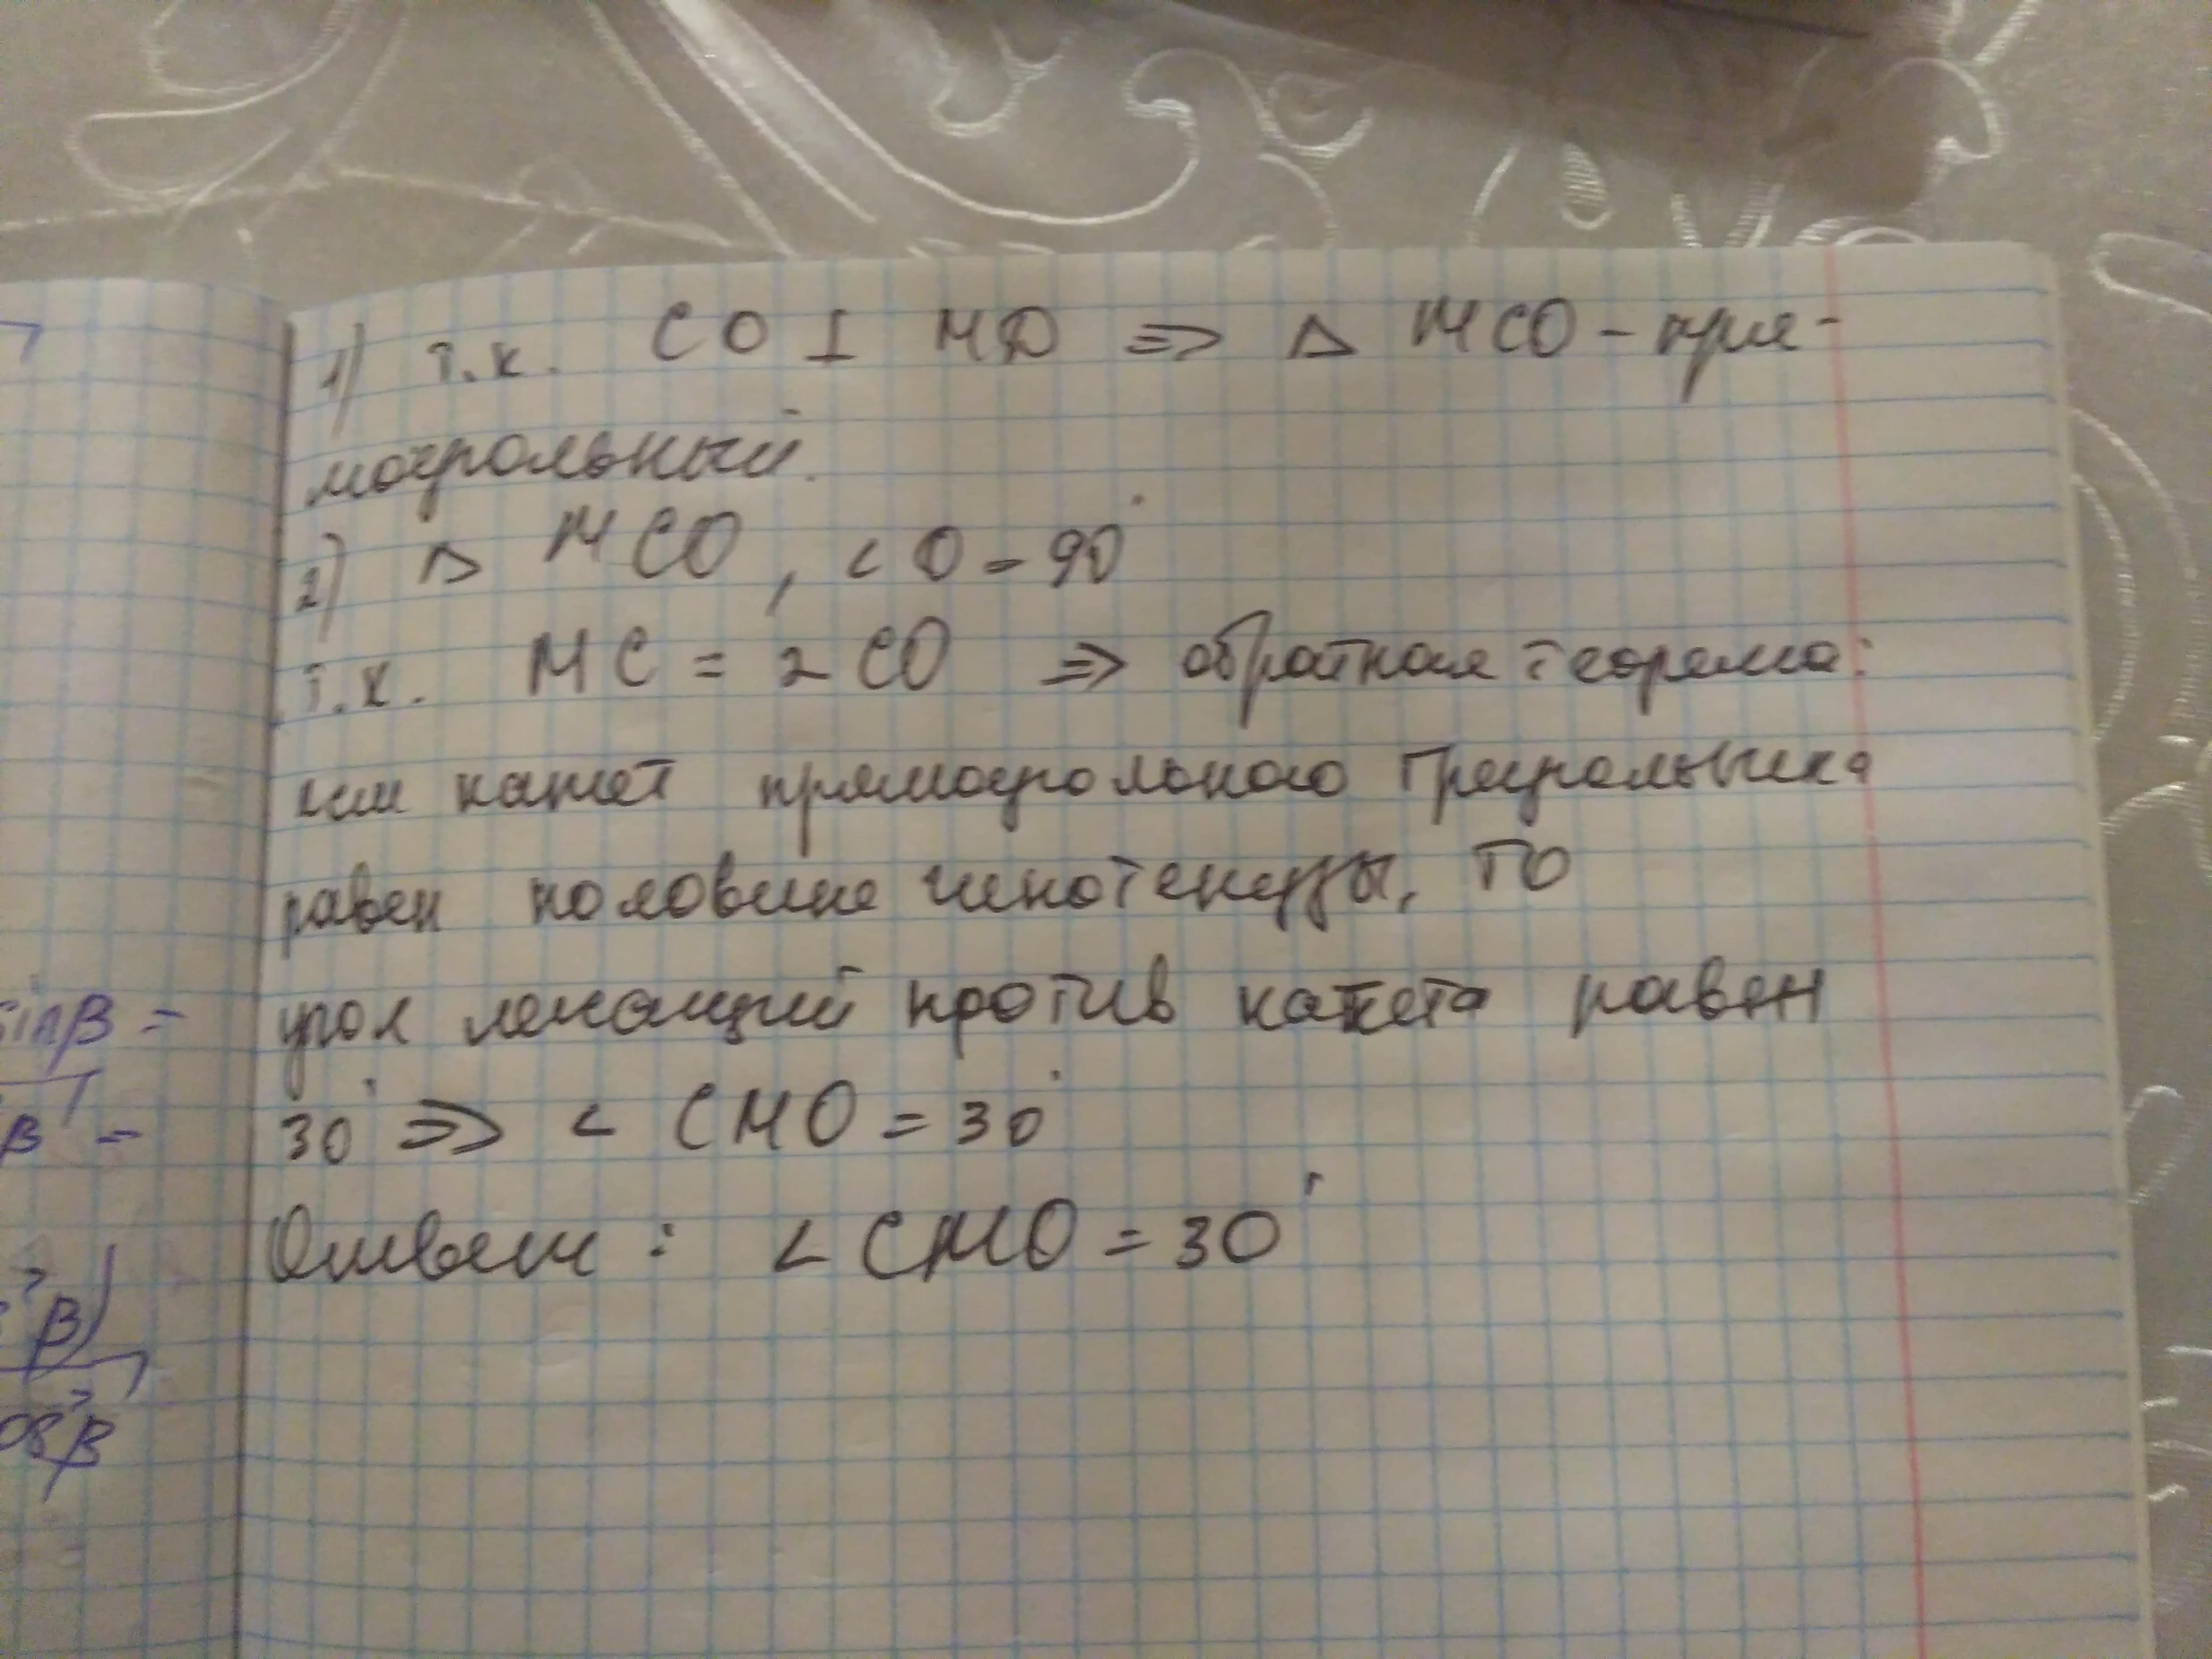 1) т.к. CO ⊥ MO => △ MCO - пря-
моугольный.
2) △ MCO, < O = 90°
т.к. MC = 2 CO => обратная теорема:
если катет прямоугольного треугольника
равен половине гипотенузы, то
угол лежащий против катета равен
30° => < CMO = 30°
Ответ : < CMO = 30°
sinβ =
β =
β)
osβ